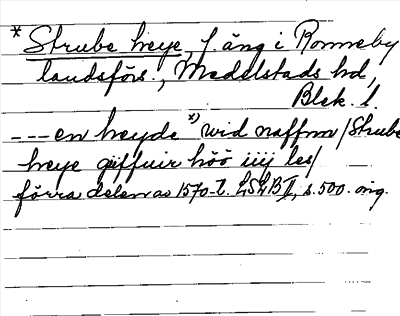 * Strube heye, f. äng i Ronneby
landsförs., Medelstads hd,
Blek. l.
--- en heyde *) wid naffnn / Strube
heye giffuir höö iiij les /
förra delen av 1570-t. LSLB II, s. 500. orig.